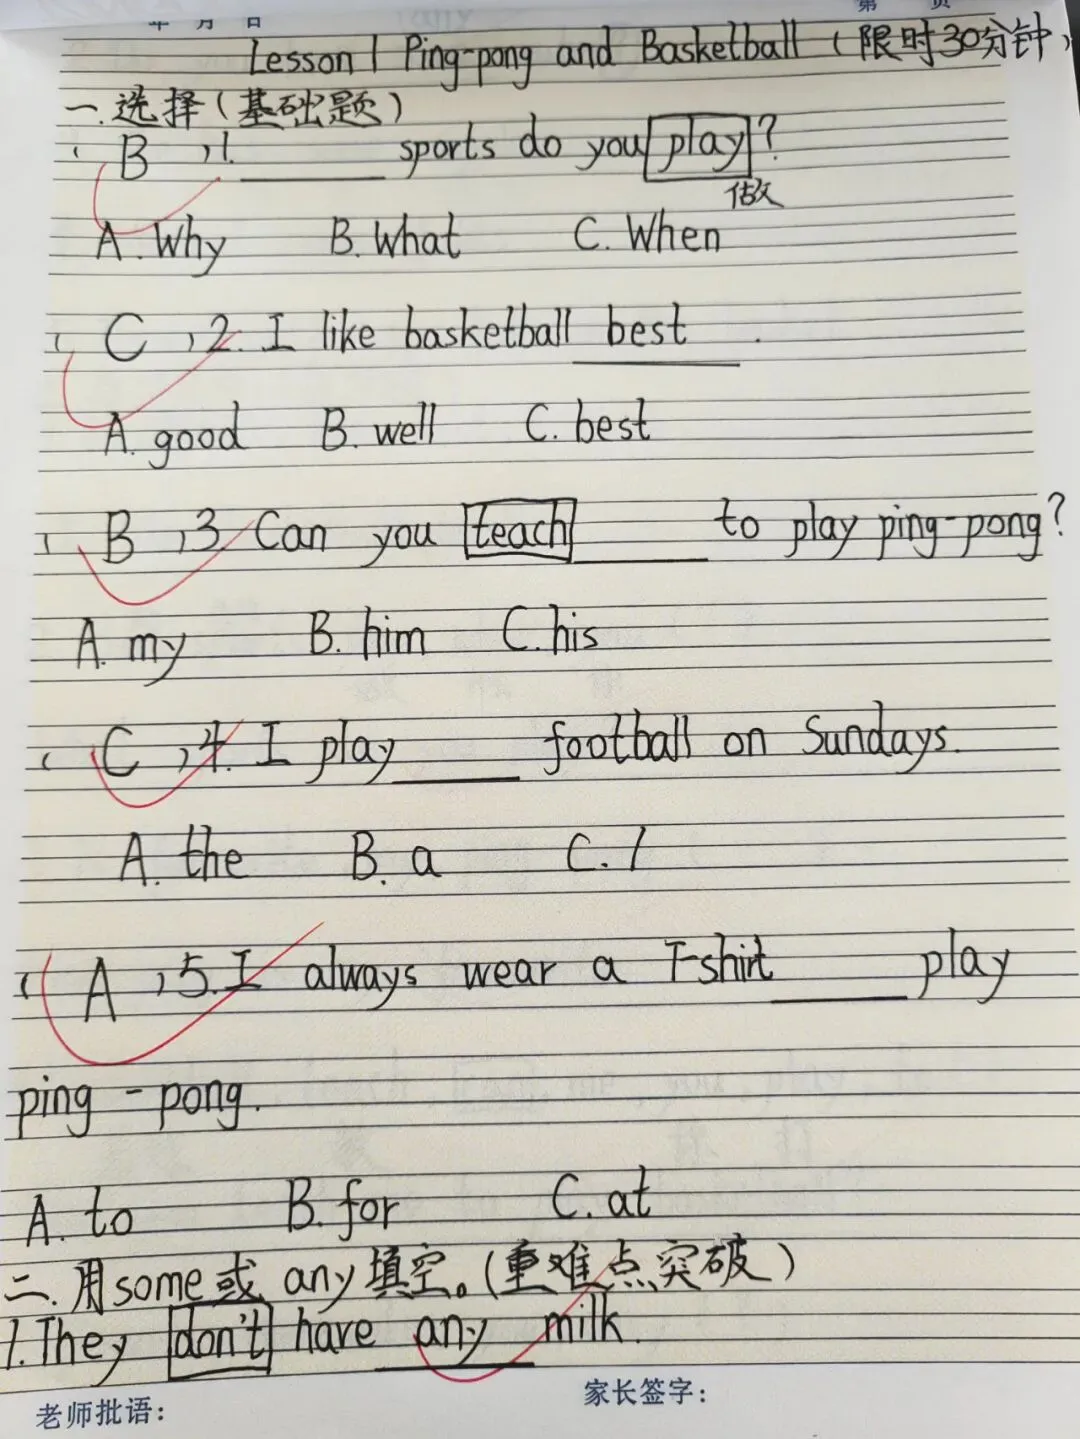 年 月 日 第 页
Lesson 1 Ping-pong and Basketball (限时30分钟)
一.选择(基础题)
( B )1. ______ sports do you play?
做
A. Why B. What C. When
( C )2. I like basketball best .
A. good B. well C. best
( B )3. Can you teach ______ to play ping-pong?
A. my B. him C. his
( C )4. I play ______ football on Sundays.
A. the B. a C. /
( A )5. I always wear a T-shirt ______ play
ping-pong.
A. to B. for C. at
二.用some或 any填空。(重难点突破)
1. They don't have any milk.
老师批语: 家长签字: